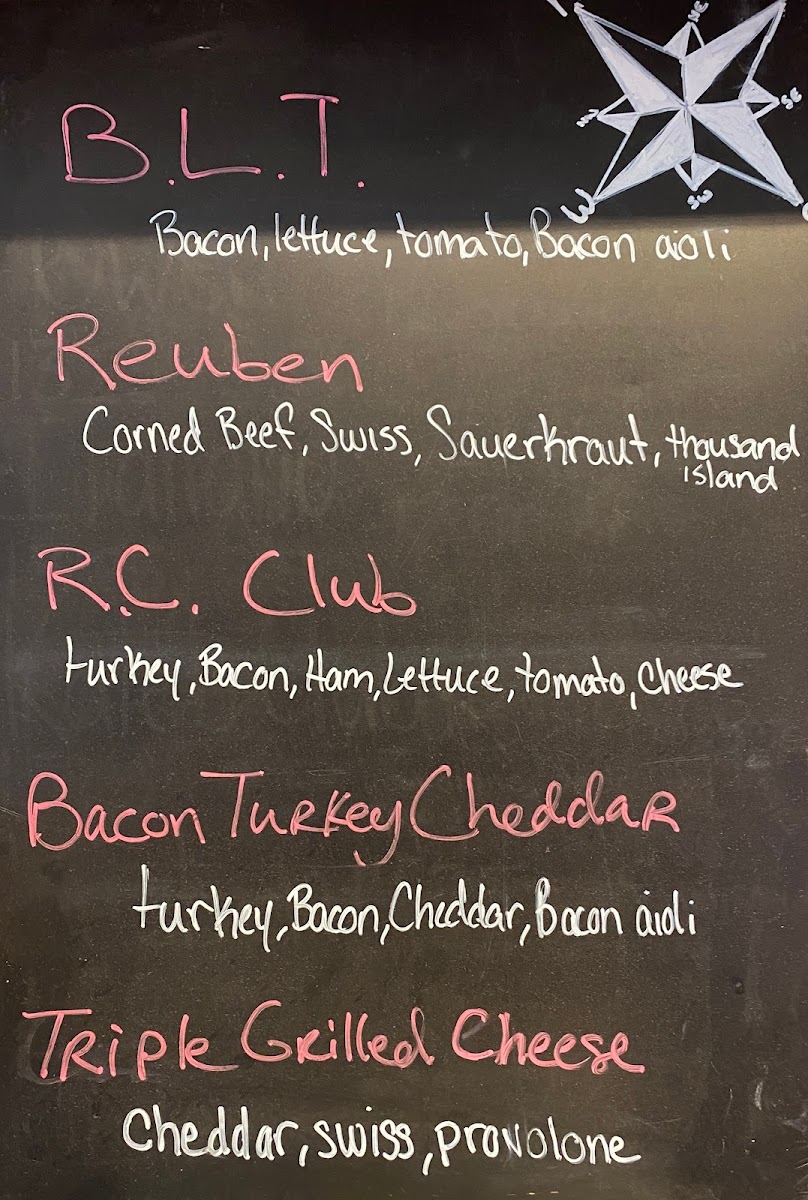 NE
SE
NW
SW
W
B.L.T.
Bacon, lettuce, tomato, Bacon aioli
Reuben
Corned Beef, Swiss, Sauerkraut, thousand
island
R.C. Club
turkey, Bacon, Ham, Lettuce, tomato, cheese
Bacon Turkey Cheddar
turkey, Bacon, Cheddar, Bacon aioli
Triple Grilled Cheese
Cheddar, swiss, provolone